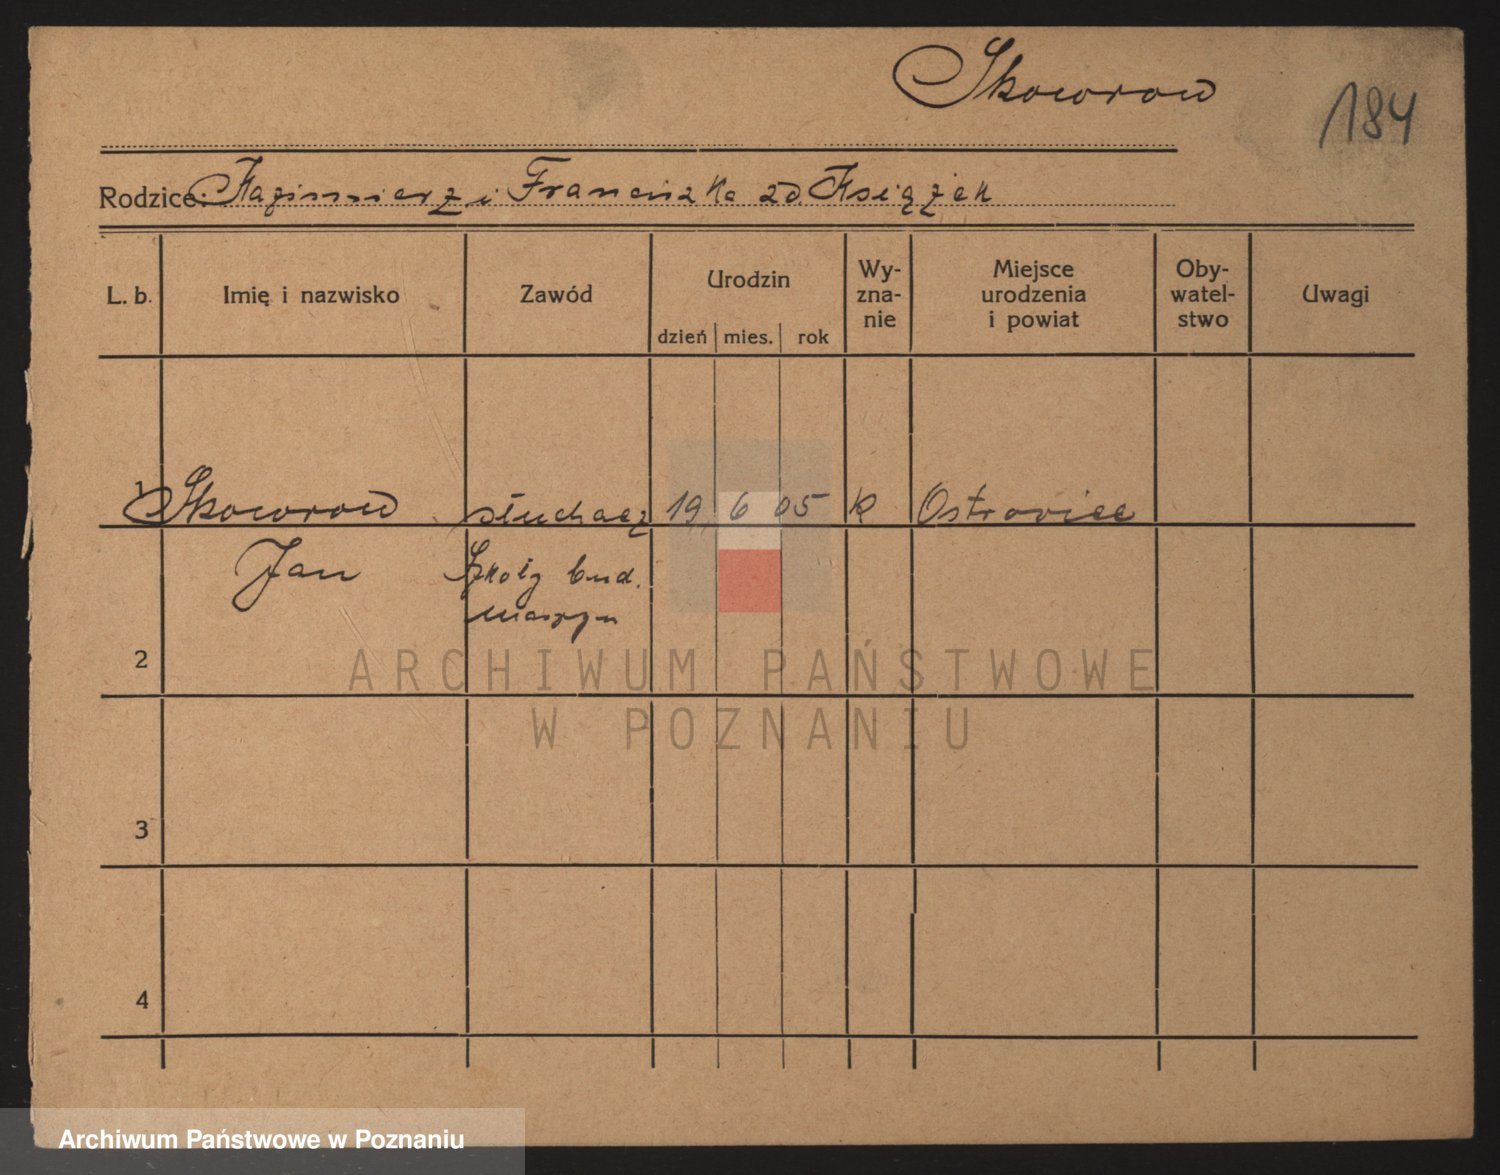 Skoworow
184
Rodzice: Kazimierz i Franciszka zd. Książek
L. b.
Imię i nazwisko
Zawód
Urodzin
dzień
mies.
rok
Wy-
zna-
nie
Miejsce
urodzenia
i powiat
Oby-
watel-
stwo
Uwagi
1
Skoworow
słuchacz
19.
6
05
k
Ostrowiec
Jan
Szkoły bud.
maszyn
2
3
4
ARCHIWUM PAŃSTWOWE
W POZNANIU
Archiwum Państwowe w Poznaniu